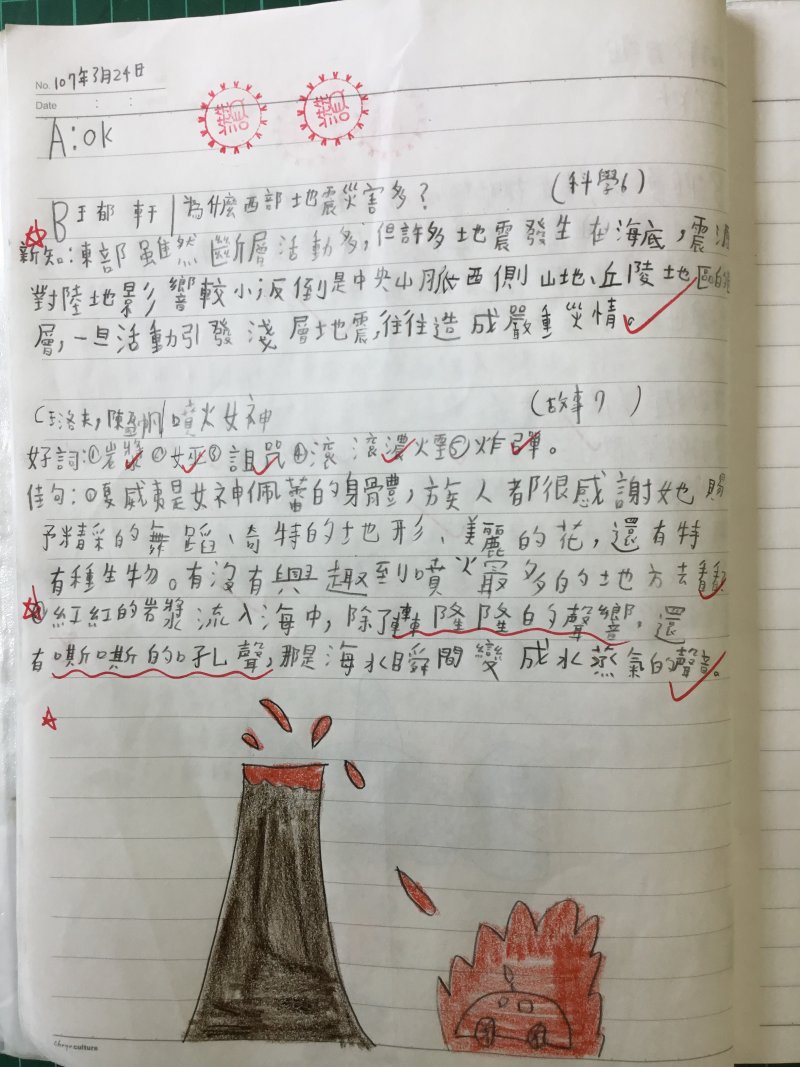 No. 107年3月24日
Date : :
A:ok
B王都軒|為什麼西部地震災害多? (科學6)
新知:東部雖然斷層活動多,但許多地震發生在海底,震
對陸地影響較小反倒是中央山脈西側山地、丘陵地區的
層,一旦活動引發淺層地震,往往造成嚴重災情。
(王洛夫,陳盈帆|噴火女神 (故事7)
好詞:①岩漿②女巫③詛咒④滾滾濃煙⑤炸彈。
佳句:①夏威夷是女神佩蕾的身體,族人都很感謝她賜
予精采的舞蹈、奇特的地形、美麗的花,還有特
有種生物。有沒有興趣到噴火最多的地方去看看
②紅紅的岩漿流入海中,除了轟隆隆的聲響,還
有嘶嘶的吼聲,那是海水瞬間變成水蒸氣的聲音。